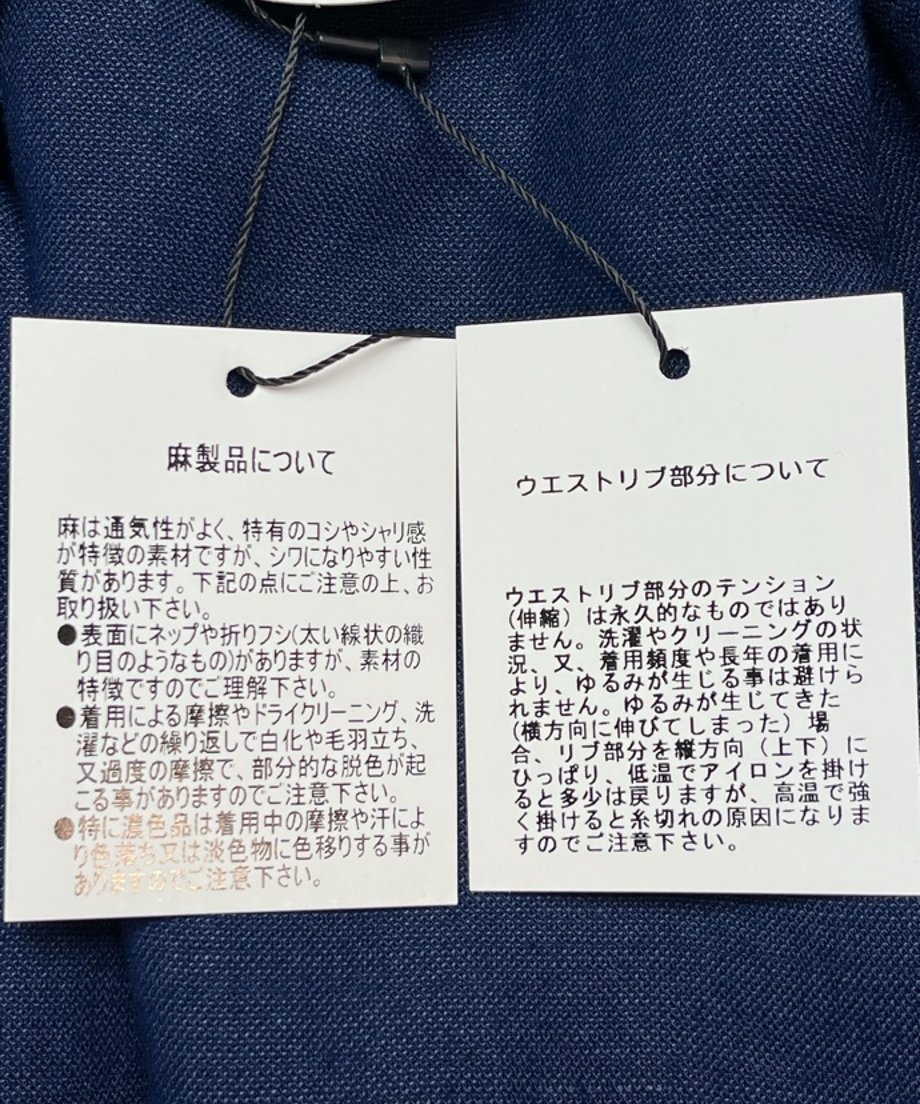 麻製品について
麻は通気性がよく、特有のコシやシャリ感
が特徴の素材ですが、シワになりやすい性
質があります。下記の点にご注意の上、お
取り扱い下さい。
●表面にネップや折りフシ(太い線状の織
り目のようなもの)がありますが、素材の
特徴ですのでご理解下さい。
●着用による摩擦やドライクリーニング、洗
濯などの繰り返しで白化や毛羽立ち、
又過度の摩擦で、部分的な脱色が起
こる事がありますのでご注意下さい。
●特に濃色品は着用中の摩擦や汗によ
り色落ち又は淡色物に色移りする事が
ありますのでご注意下さい。
ウエストリブ部分について
ウエストリブ部分のテンション
(伸縮)は永久的なものではあり
ません。洗濯やクリーニングの状
況、又、着用頻度や長年の着用に
より、ゆるみが生じる事は避けら
れません。ゆるみが生じてきた
(横方向に伸びてしまった)場
合、リブ部分を縦方向(上下)に
ひっぱり、低温でアイロンを掛け
ると多少は戻りますが、高温で強
く掛けると糸切れの原因になりま
すのでご注意下さい。